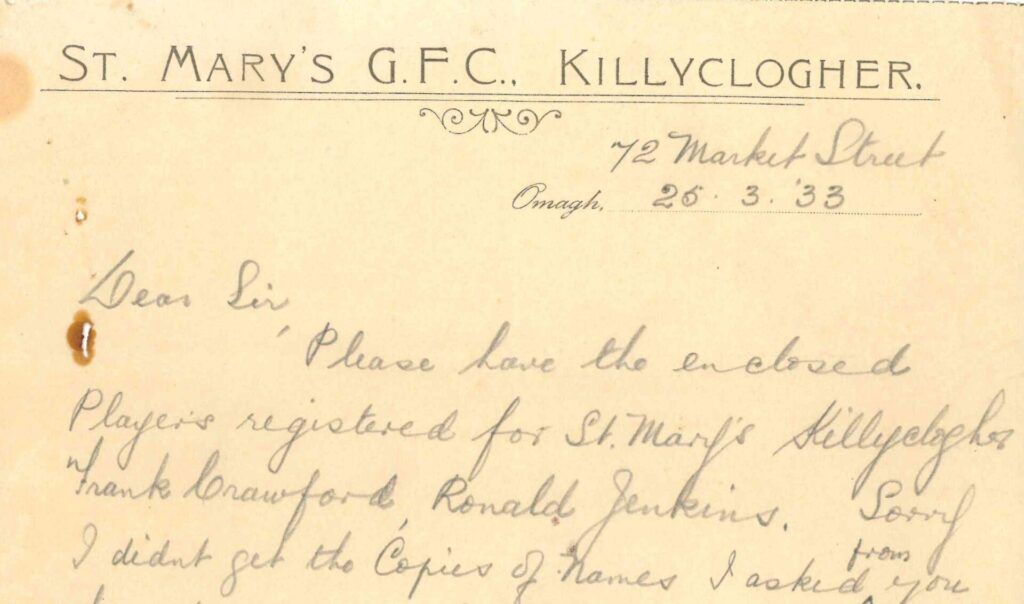 ST. MARY'S G.F.C., KILLYCLOGHER.
72 Market Street
Omagh, 25. 3. '33
Dear Sir,
Please have the enclosed
Players registered for St. Mary's Killyclogher
Frank Crawford, Ronald Jenkins. Sorry
I didnt get the Copies of names I asked from you